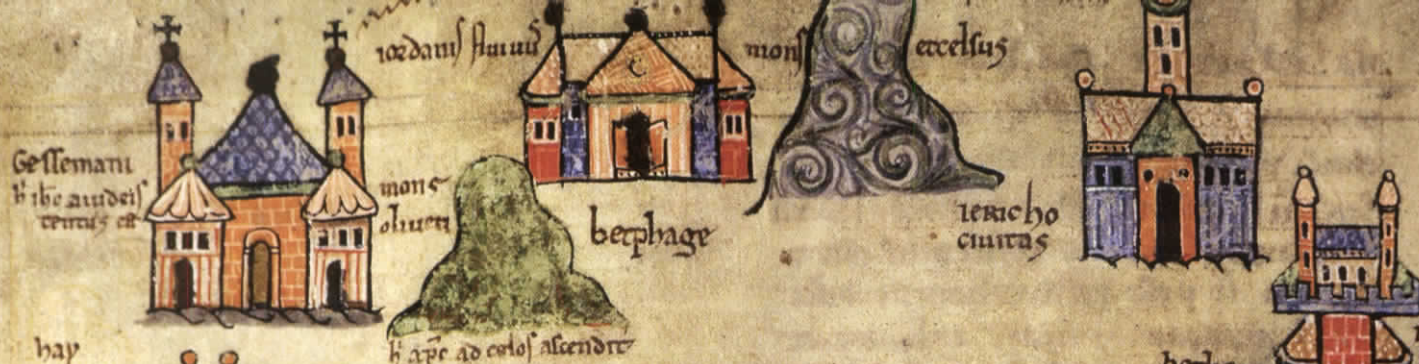 iordanis fluuius
mons excelsus
Gessemani
h ihc a iudeis
tentus est
mons
oliueti
betphage
iericho
ciuitas
h xpc ad celos ascendit
hay